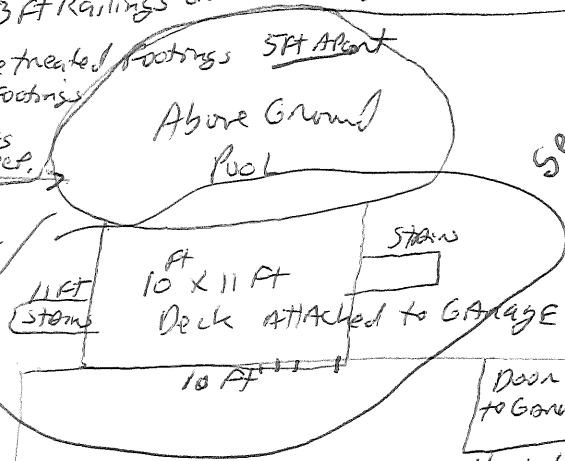 3 ft Railings
treated footings 5ft Apart
footings
Above Ground
Pool
Stairs
11 ft
Stairs
10 ft x 11 ft
Deck Attached to Garage
10 ft
Door
to Gara